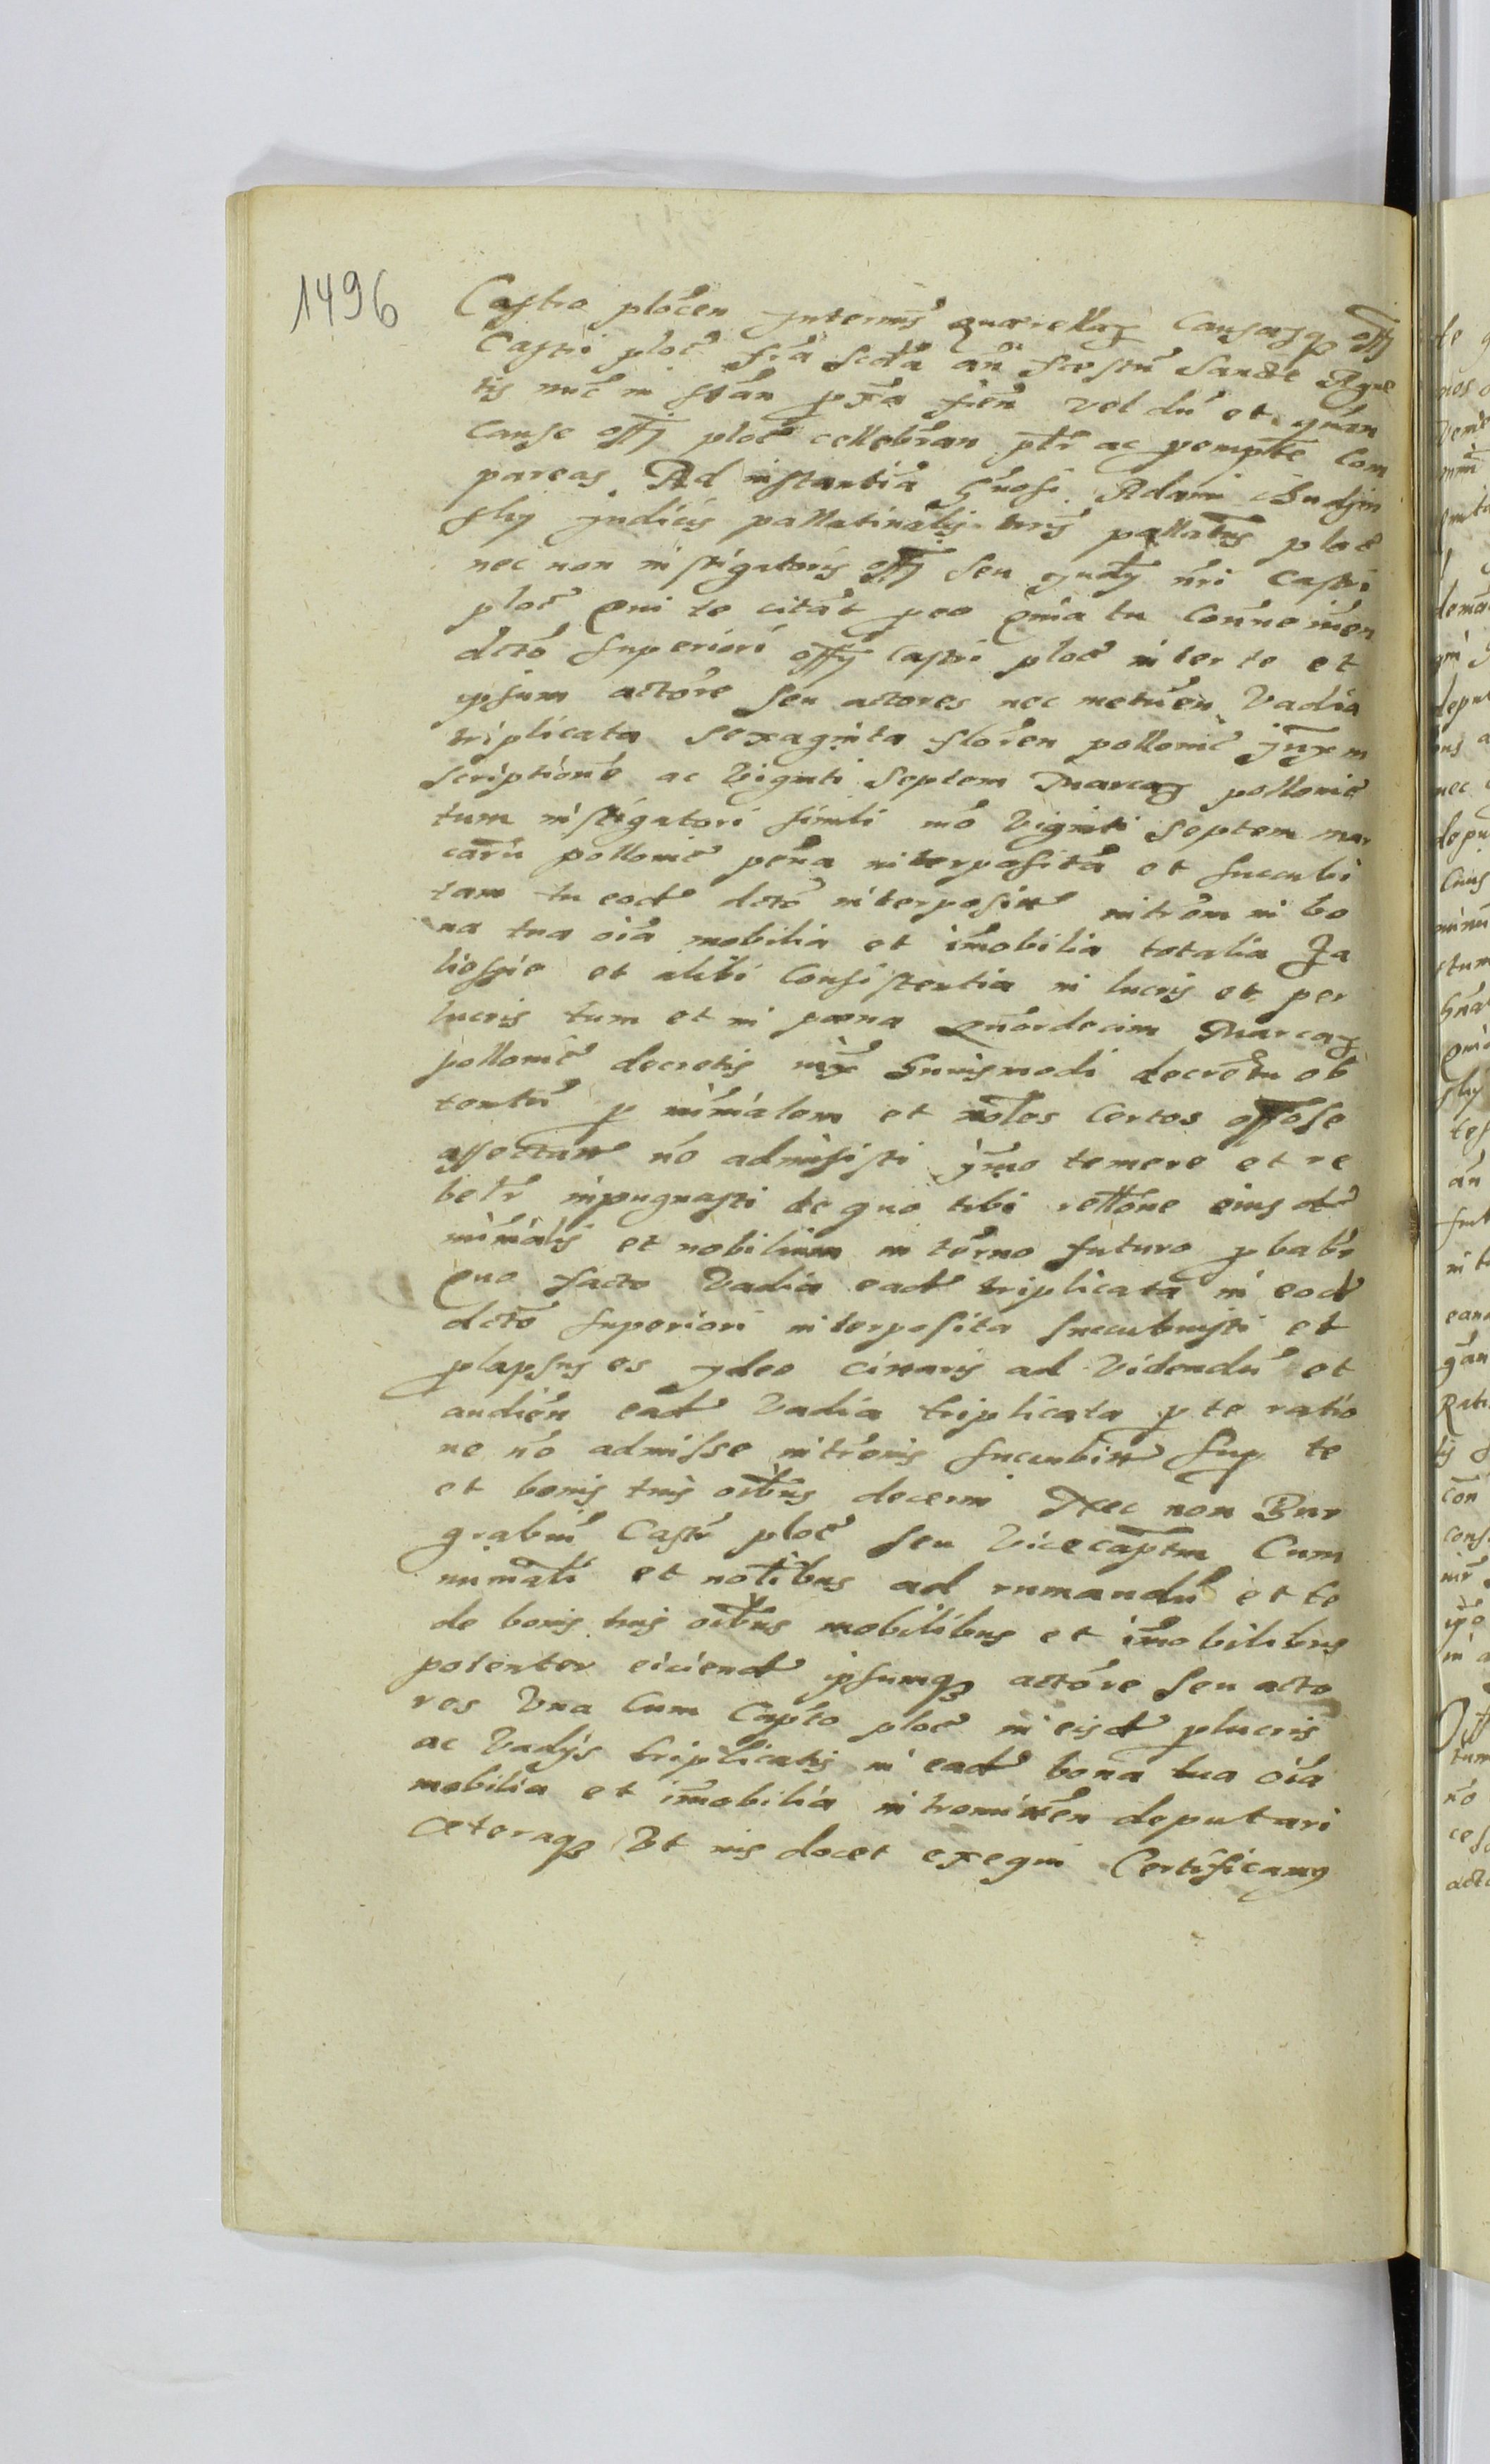 1496
Castro plocen Interuis quærellaꝝ Causarūqꝫ offi
Castri ploc̄ fr̄a Scdā an̄ fœstū Sancte Agne
tis nūc in stān pꝛ̄a fien̄ vel dū et qn̄an
Cause offy ploc̄ cellebran̄ pt̄r ac pemptē Com
pareas Ad instantiā Gnosi Adami Budzin
sky Judicis pallatinalis trr̄s pallatus ploc̄
nec non instigatoris offy seu Judy nr̄i Castri
ploc̄ Qui te citāt peo Qm̄a tu Conueniē̄n
dcrō Superiori offy Castri ploc̄ inter te et
ipsum actōre Seu actores nec metuēn Vadia
triplicata Sexaginta floren̄ pollonic̄ Juxͫ in
scriptionē ac Viginti Septem Marcaꝝ pollonic̄
tum instigatori simili mō Viginti Septem mar
carū pollonic̄ pena interposita et succubi
tam tu eod̄ dcrō interposit̄ intrōm in bo
na tua oīa mobilia et im̄obilia totalia Ja
liessie et alibi Consistentia in lucris et per
lucris tum et in pœna Quordecim Marcaꝝ
pollonic̄ decretis Huiusmodi decretū ob
tentū p minīalem et nōles Certos offōse
affectan̄ nō admisisti ym̄o temere et re
bel̄r inpugnasti de quo tibi rellōne eius d̄
minīalis et nobilium in tērno futuro pbab̄r
Quo facto Vadia ead̄ triplicata in eod̄
dcrō Superiori interposita Succubuisti et
plapsus es ydeo Citaris ad Videndū et
audiēn ead̄ Vadia triplicata p te ratiō
ne nō admisse intrōnis Succubit̄ Sup te
et bonis tuis oībus decerni Nec non Bur
grabiū Castr̄ ploc̄ Seu Vicecaptm̄ Cum
minīali et nōlibus ad rumandū et te
de bonis tuis oībus mobilibus et im̄obilibus
potenter eiciend̄ ipsumqꝫ actōre Seu acto
res Vna Cum Capto ploc̄ in eisd̄ plucris
ac Vadys triplicatis in ead̄ bona tua oīa
mobilia et im̄obilia intromittēn deputari
Cæteraqꝫ Vt ius docet exequi Certificamꝰ